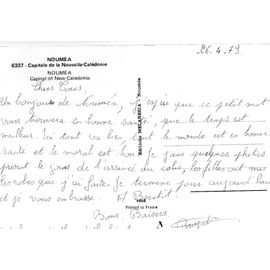 NOUMEA
26.4.79
6337 - Capitale de la Nouvelle-Calédonie
NOUMEA
Capital of New-Caledonia
Chers Tous,
Un bonjour de Nouméa, j'espère que ce petit mot
vous trouvera en bonne santé, que le temps est
meilleur. Ici tout va bien tout le monde est en bonne
santé et le moral est bon. Je joins quelques photos
présent le jour de l'arrivée du colis, les filles ont mis
les robes que j'ai faite. Je termine pour aujourd'hui
et je vous embrasse. A Bientôt!
Bons Baisers
Printed in France
A